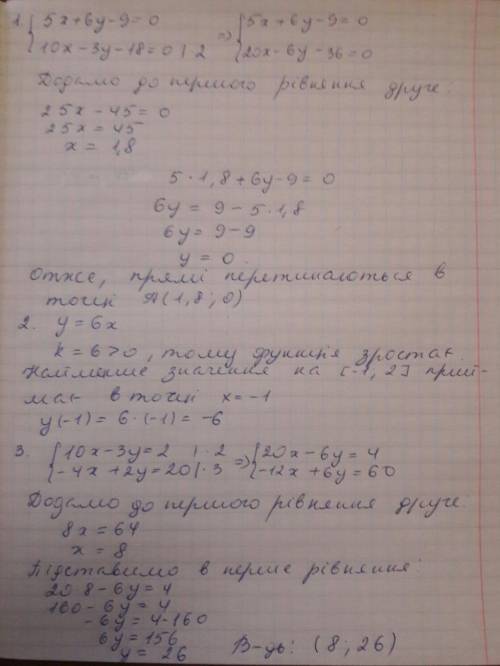 1. { 5x+6y-9=0 => { 5x+6y-9=0
10x-3y-18=0 |·2 20x-6y-36=0
Додамо до першого рівняння друге:
25x-45=0
25x=45
x=1,8
5·1,8+6y-9=0
6y=9-5·1,8
6y=9-9
y=0
Отже, прямі перетинаються в
точці A(1,8; 0)
2. y=6x
k=6>0, тому функція зростає.
Найменше значення на [-1; 2] прий-
має в точці x=-1
y(-1)=6·(-1)=-6
3. { 10x-3y=2 |·2 => { 20x-6y=4
-4x+2y=20 |·3 -12x+6y=60
Додамо до першого рівняння друге:
8x=64
x=8
Підставимо в перше рівняння:
20·8-6y=4
160-6y=4
-6y=4-160
6y=156
y=26 В-дь: (8; 26)